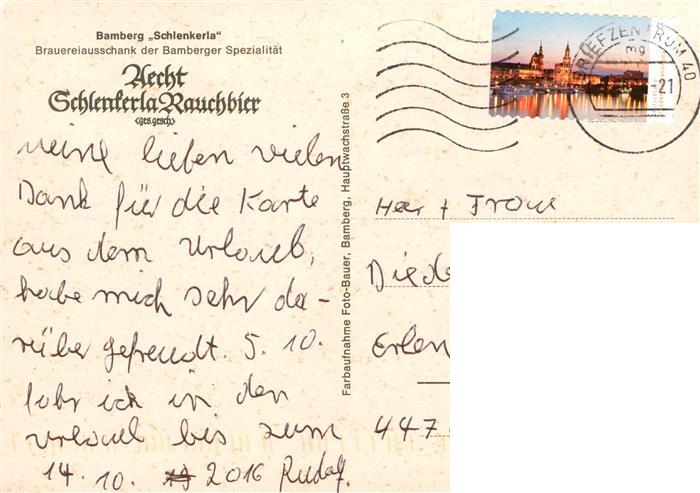 Bamberg „Schlenkerla"
Brauereiausschank der Bamberger Spezialität
Aecht
Schlenkerla Rauchbier
<ges.gesch>
meine lieben vielen
Dank für die Karte
aus dem Urlaub,
habe mich sehr da-
rüber gefreudt. 5. 10.
fahr ich in den
Urlaub bis zum
14. 10. 2016 Rudolf.
Farbaufnahme Foto-Bauer, Bamberg, Hauptwachstraße 3
BRIEFZENTRUM 40
mg
21
Herr + Frau
Diede
Erlen
447